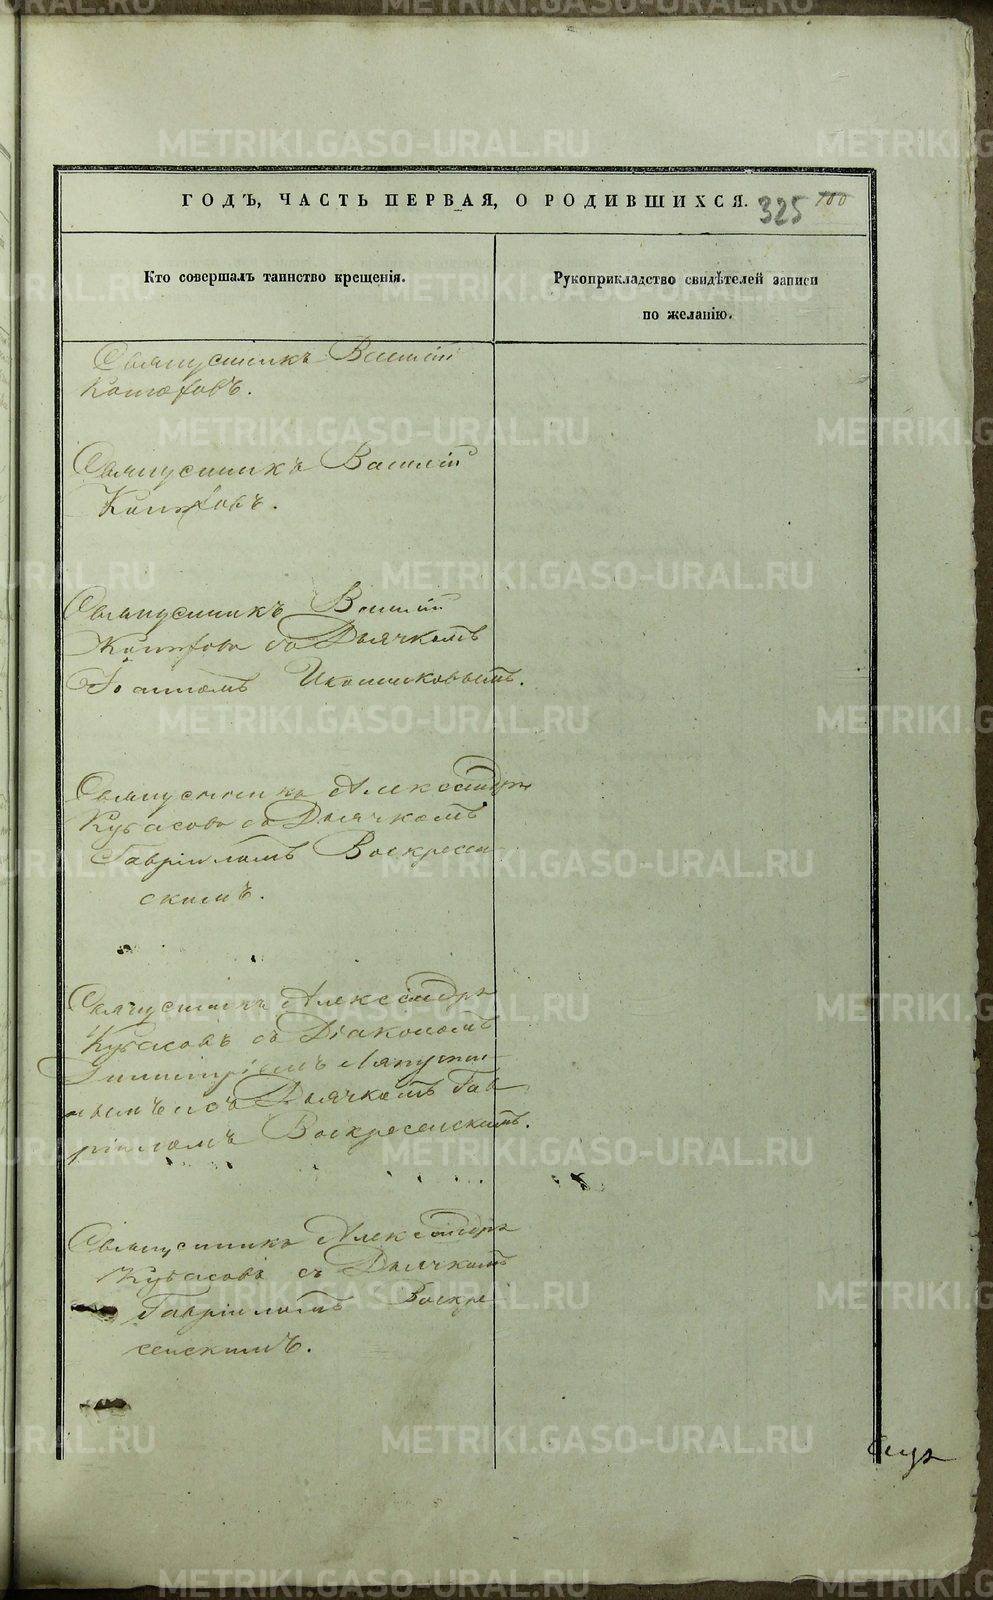 ГОДЪ, ЧАСТЬ ПЕРВАЯ, О РОДИВШИХСЯ. 325 100
Кто совершалъ таинство крещенія.
Рукоприкладство свидѣтелей записи
по желанію.
Священникъ Василій
Священникъ Василій
Священникъ Василій
съ Дьячкомъ
Іоанномъ Иконниковымъ.
Священникъ Александръ
Кубасовъ съ Дьячкомъ
Гавріиломъ Воскресен-
скимъ.
Священникъ Александръ
Кубасовъ съ Діакономъ
Димитріемъ Ляпусти-
нымъ и съ Дьячкомъ Гав-
ріиломъ Воскресенскимъ.
Священникъ Александръ
Кубасовъ съ Дьячкомъ
Гавріиломъ Воскре-
сенскимъ.
METRIKI.GASO-URAL.RU